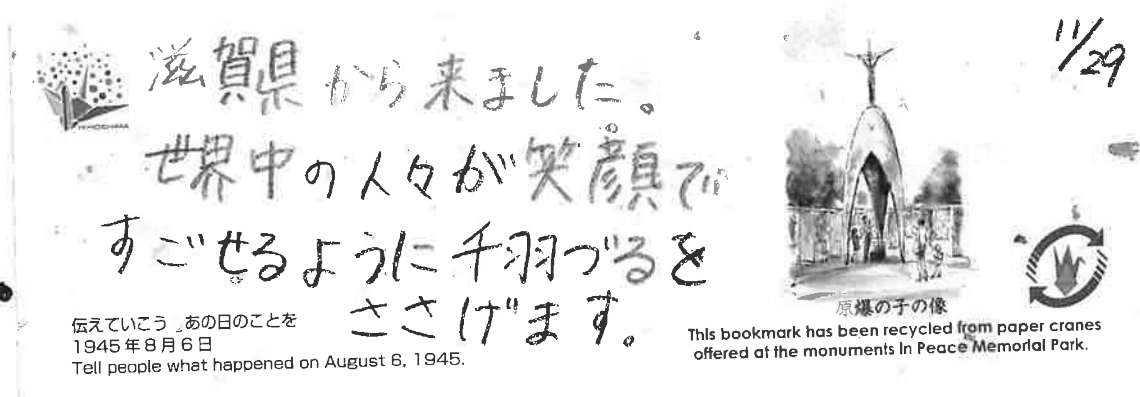 滋賀県から来ました。
世界中の人々が笑顔で
すごせるように千羽づるを
ささげます。
11/29
HIROSHIMA
伝えていこう あの日のことを
1945年8月6日
Tell people what happened on August 6, 1945.
原爆の子の像
This bookmark has been recycled from paper cranes
offered at the monuments in Peace Memorial Park.